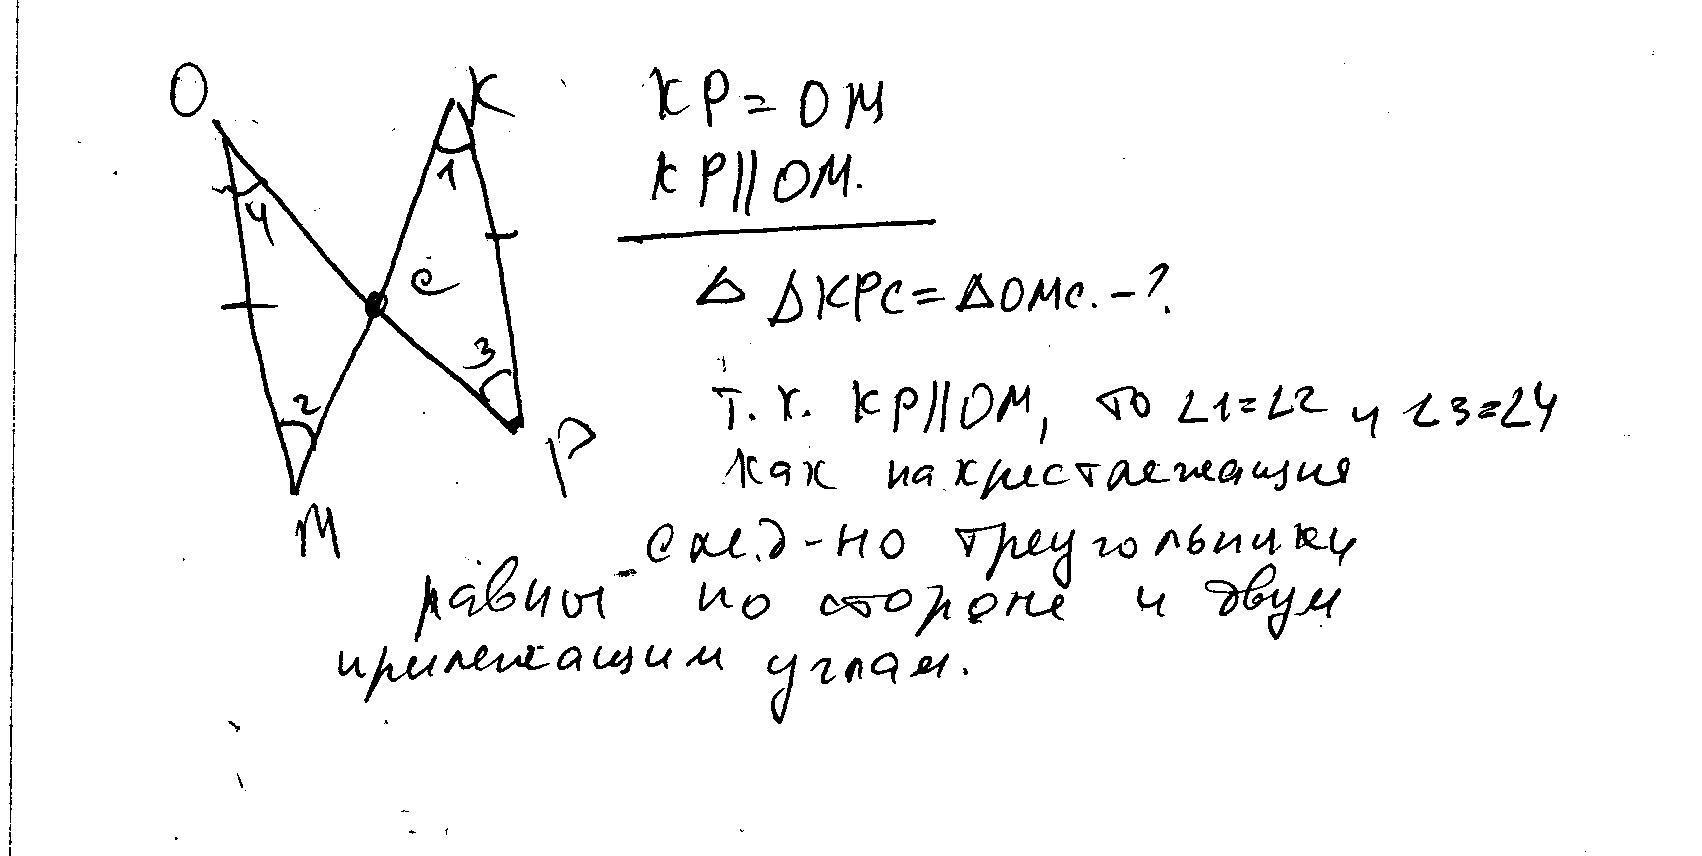 O
K
1
4
C
3
2
P
M
KP = OM
KP || OM.
Δ ΔKPC = ΔOMC. - ?
Т.к. KP || OM, то ∠1=∠2 и ∠3=∠4
как накрестлежащие
след-но треугольники
равны по стороне и двум
прилежащим углам.